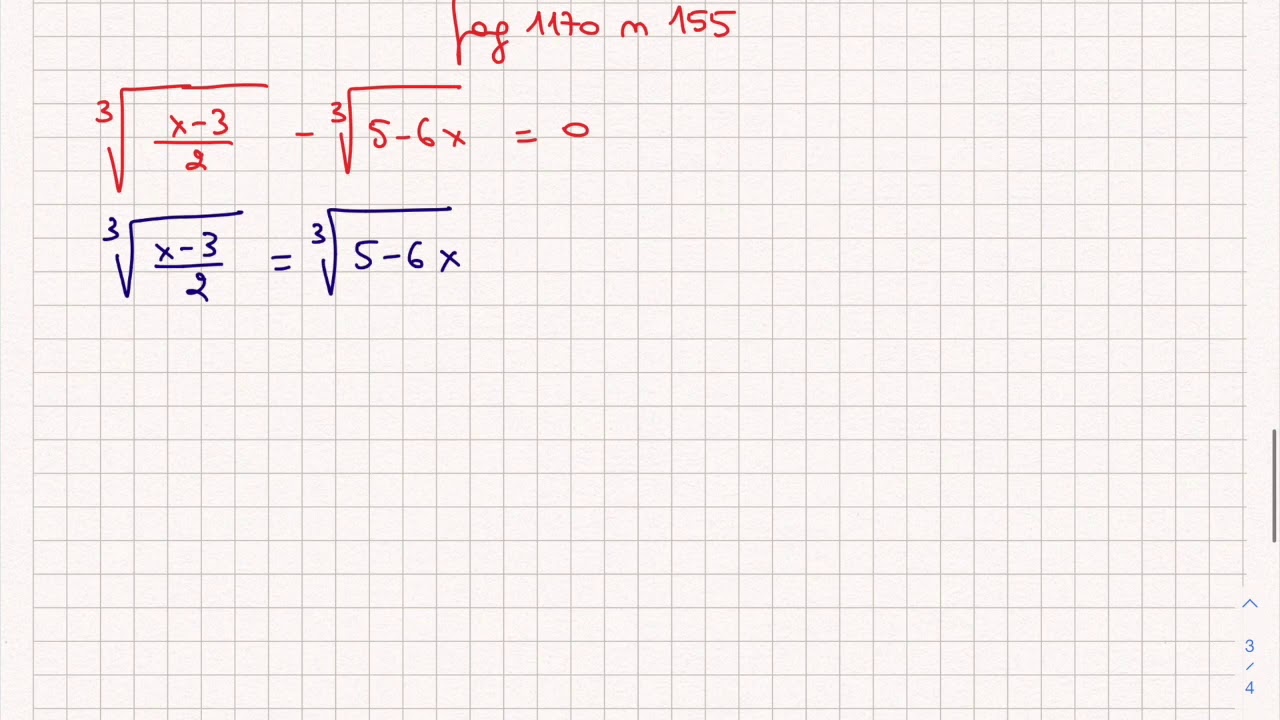 pag 1170 n 155
∛((x-3)/2) - ∛(5-6x) = 0
∛((x-3)/2) = ∛(5-6x)
3
/
4